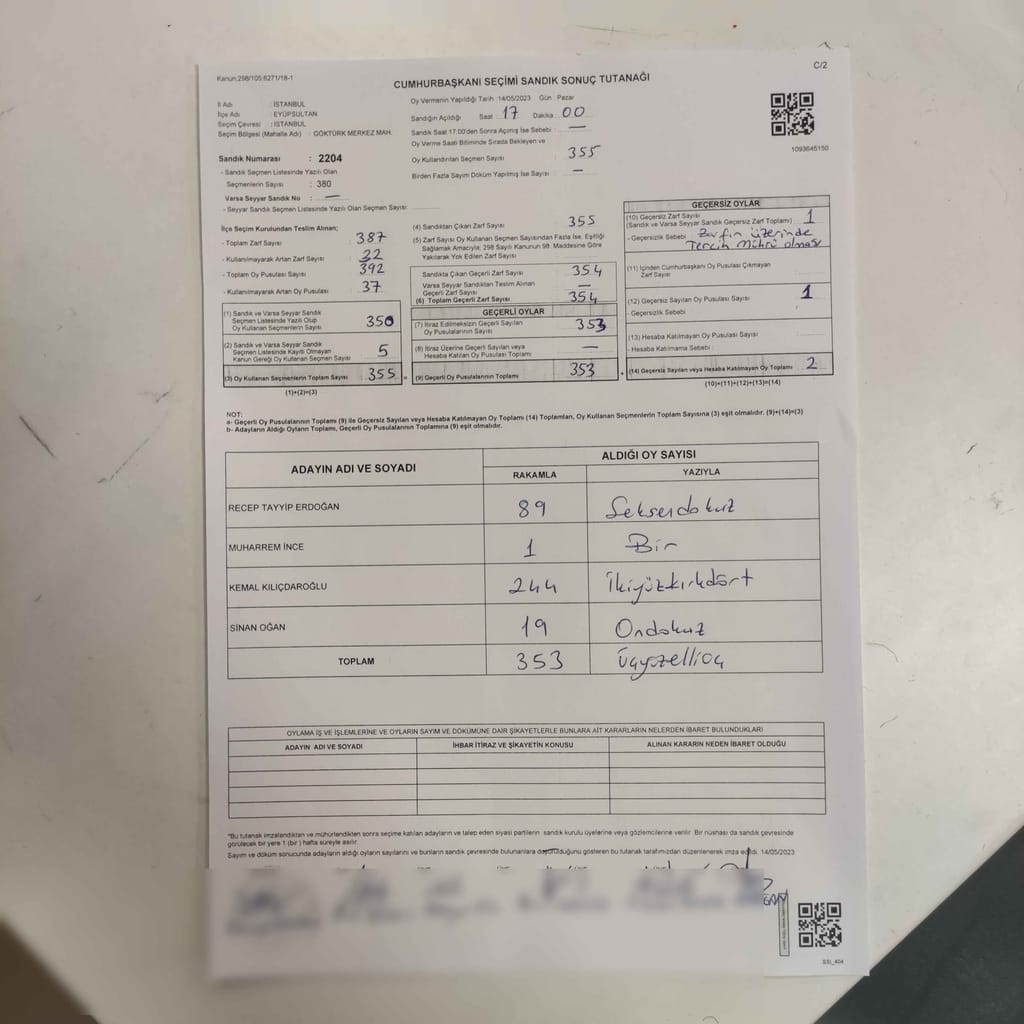 Kanun;298/105;6271/18-1
C/2
CUMHURBAŞKANI SEÇİMİ SANDIK SONUÇ TUTANAĞI
İl Adı : İSTANBUL
İlçe Adı : EYÜPSULTAN
Seçim Çevresi : İSTANBUL
Seçim Bölgesi (Mahalle Adı) : GÖKTÜRK MERKEZ MAH.
Oy Vermenin Yapıldığı Tarih :14/05/2023 Gün : Pazar
Sandığın Açıldığı Saat : 17 Dakika : 00
Sandık Saat 17:00'den Sonra Açılmış İse Sebebi : —
Oy Verme Saati Bitiminde Sırada Bekleyen ve
Oy Kullandırılan Seçmen Sayısı : 355
Birden Fazla Sayım Döküm Yapılmış İse Sayısı : —
1093645150
Sandık Numarası : 2204
- Sandık Seçmen Listesinde Yazılı Olan
Seçmenlerin Sayısı : 380
Varsa Seyyar Sandık No : —
- Seyyar Sandık Seçmen Listesinde Yazılı Olan Seçmen Sayısı:
İlçe Seçim Kurulundan Teslim Alınan;
- Toplam Zarf Sayısı : 387
- Kullanılmayarak Artan Zarf Sayısı : 22
- Toplam Oy Pusulası Sayısı : 392
- Kullanılmayarak Artan Oy Pusulası : 37
(1) Sandık ve Varsa Seyyar Sandık
Seçmen Listesinde Yazılı Olup
Oy Kullanan Seçmenlerin Sayısı : 350
(2) Sandık ve Varsa Seyyar Sandık
Seçmen Listesinde Kayıtlı Olmayan
Kanun Gereği Oy Kullanan Seçmen Sayısı : 5
(3) Oy Kullanan Seçmenlerin Toplam Sayısı : 355 =
(1)+(2)=(3)
(4) Sandıktan Çıkan Zarf Sayısı : 355
(5) Zarf Sayısı Oy Kullanan Seçmen Sayısından Fazla İse, Eşitliği
Sağlamak Amacıyla; 298 Sayılı Kanunun 98. Maddesine Göre
Yakılarak Yok Edilen Zarf Sayısı :
Sandıkta Çıkan Geçerli Zarf Sayısı : 354
Varsa Seyyar Sandıktan Teslim Alınan
Geçerli Zarf Sayısı : —
(6) Toplam Geçerli Zarf Sayısı : 354
GEÇERLİ OYLAR
(7) İtiraz Edilmeksizin Geçerli Sayılan
Oy Pusulalarının Sayısı : 353
(8) İtiraz Üzerine Geçerli Sayılan veya
Hesaba Katılan Oy Pusulası Toplamı : —
(9) Geçerli Oy Pusulalarının Toplamı : 353 +
GEÇERSİZ OYLAR
(10) Geçersiz Zarf Sayısı
(Sandık ve Varsa Seyyar Sandık Geçersiz Zarf Toplamı) : 1
- Geçersizlik Sebebi : Zarfın üzerinde
Tercih Mührü olması
(11) İçinden Cumhurbaşkanı Oy Pusulası Çıkmayan
Zarf Sayısı :
(12) Geçersiz Sayılan Oy Pusulası Sayısı : 1
- Geçersizlik Sebebi :
(13) Hesaba Katılmayan Oy Pusulası Sayısı :
- Hesaba Katılmama Sebebi :
(14) Geçersiz Sayılan veya Hesaba Katılmayan Oy Toplamı : 2
(10)+(11)+(12)+(13)=(14)
NOT:
a- Geçerli Oy Pusulalarının Toplamı (9) ile Geçersiz Sayılan veya Hesaba Katılmayan Oy Toplamı (14) Toplamları, Oy Kullanan Seçmenlerin Toplam Sayısına (3) eşit olmalıdır. (9)+(14)=(3)
b- Adayların Aldığı Oyların Toplamı, Geçerli Oy Pusulalarının Toplamına (9) eşit olmalıdır.
ADAYIN ADI VE SOYADI ALDIĞI OY SAYISI
RAKAMLA YAZIYLA
RECEP TAYYİP ERDOĞAN 89 Seksendokuz
MUHARREM İNCE 1 Bir
KEMAL KILIÇDAROĞLU 244 İkiyüzkırkdört
SİNAN OĞAN 19 Ondokuz
TOPLAM 353 Üçyüzelliüç
OYLAMA İŞ VE İŞLEMLERİNE VE OYLARIN SAYIM VE DÖKÜMÜNE DAİR ŞİKAYETLERLE BUNLARA AİT KARARLARIN NELERDEN İBARET BULUNDUKLARI
ADAYIN ADI VE SOYADI İHBAR İTİRAZ VE ŞİKAYETİN KONUSU ALINAN KARARIN NEDEN İBARET OLDUĞU
*Bu tutanak imzalandıktan ve mühürlendikten sonra seçime katılan adayların ve talep eden siyasi partilerin sandık kurulu üyelerine veya gözlemcilerine verilir. Bir nüshası da sandık çevresinde
görülecek bir yere 1 (bir) hafta süreyle asılır.
Sayım ve döküm sonucunda adayların aldığı oyların sayılarını ve bunların sandık çevresinde bulunanlara duyurulduğunu gösteren bu tutanak tarafımızdan düzenlenerek imza edildi. 14/05/2023
SSI_404